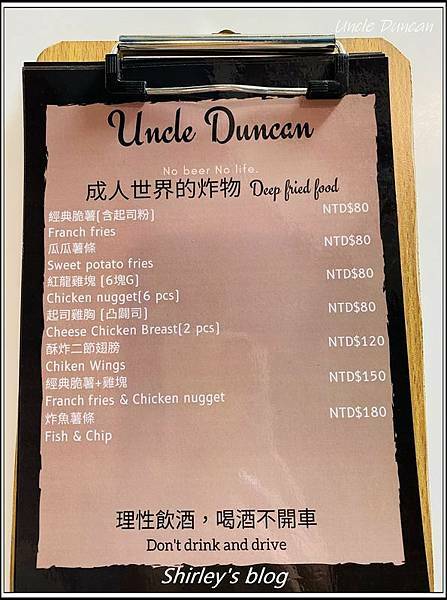 Uncle Duncan
Uncle Duncan
No beer No life.
成人世界的炸物 Deep fried food
經典脆薯[含起司粉] NTD$80
Franch fries
瓜瓜薯條 NTD$80
Sweet potato fries
紅龍雞塊 [6塊G] NTD$80
Chicken nugget[6 pcs]
起司雞胸 [凸閮司] NTD$80
Cheese Chicken Breast[2 pcs]
酥炸二節翅膀 NTD$120
Chiken Wings
經典脆薯+雞塊 NTD$150
Franch fries & Chicken nugget
炸魚薯條 NTD$180
Fish & Chip
理性飲酒，喝酒不開車
Don't drink and drive
Shirley's blog